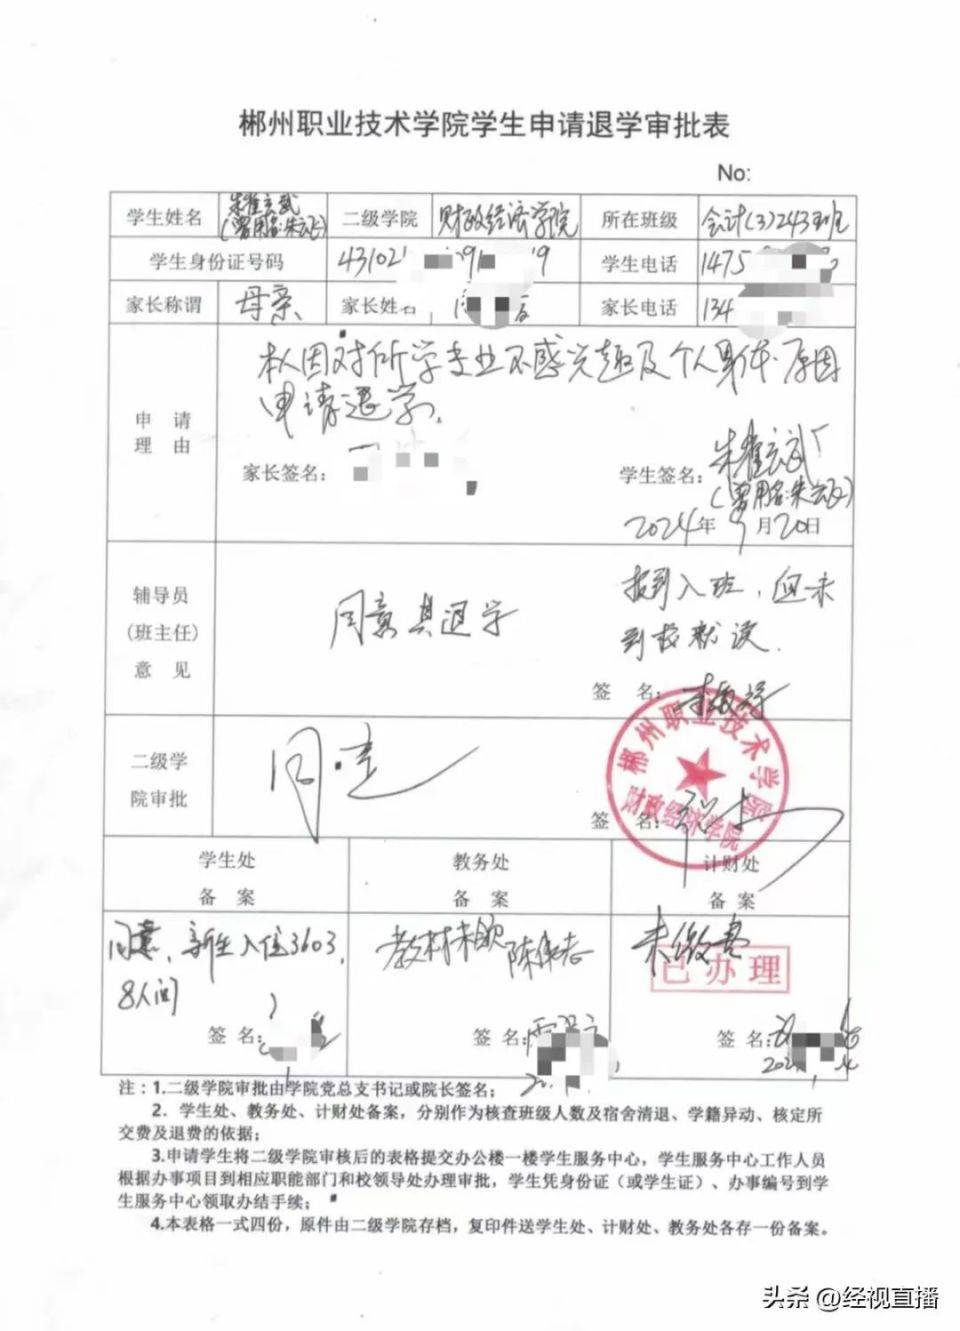 郴州职业技术学院学生申请退学审批表
No:
学生姓名 朱雀玄武 (曾用名:朱云飞) 二级学院 财政经济学院 所在班级 会计(3)243班
学生身份证号码 43102 9 学生电话 1475
家长称谓 母亲 家长姓名 家长电话 134
申请理由
本人因对所学专业不感兴趣及个人身体原因
申请退学。
家长签名: 学生签名: 朱雀玄武
(曾用名:朱云飞)
2024年9月20日
辅导员
(班主任)
意见
同意其退学
报到入班，但未
到校就读.
签 名:
二级学
院审批
同意
签 名:
郴州职业技术学院
财政经济学院
学生处 教务处 计财处
备案 备案 备案
同意、新生入住3603,
8人间
教材未领 陈
未缴费
已办理
签 名: 签 名: 签 名:
注：1.二级学院审批由学院党总支书记或院长签名；
2．学生处、教务处、计财处备案，分别作为核查班级人数及宿舍清退、学籍异动、核定所
交费及退费的依据；
3.申请学生将二级学院审核后的表格提交办公楼一楼学生服务中心，学生服务中心工作人员
根据办事项目到相应职能部门和校领导处办理审批，学生凭身份证（或学生证）、办事编号到学
生服务中心领取办结手续；
4.本表格一式四份，原件由二级学院存档，复印件送学生处、计财处、教务处各存一份备案。
头条 @经视直播